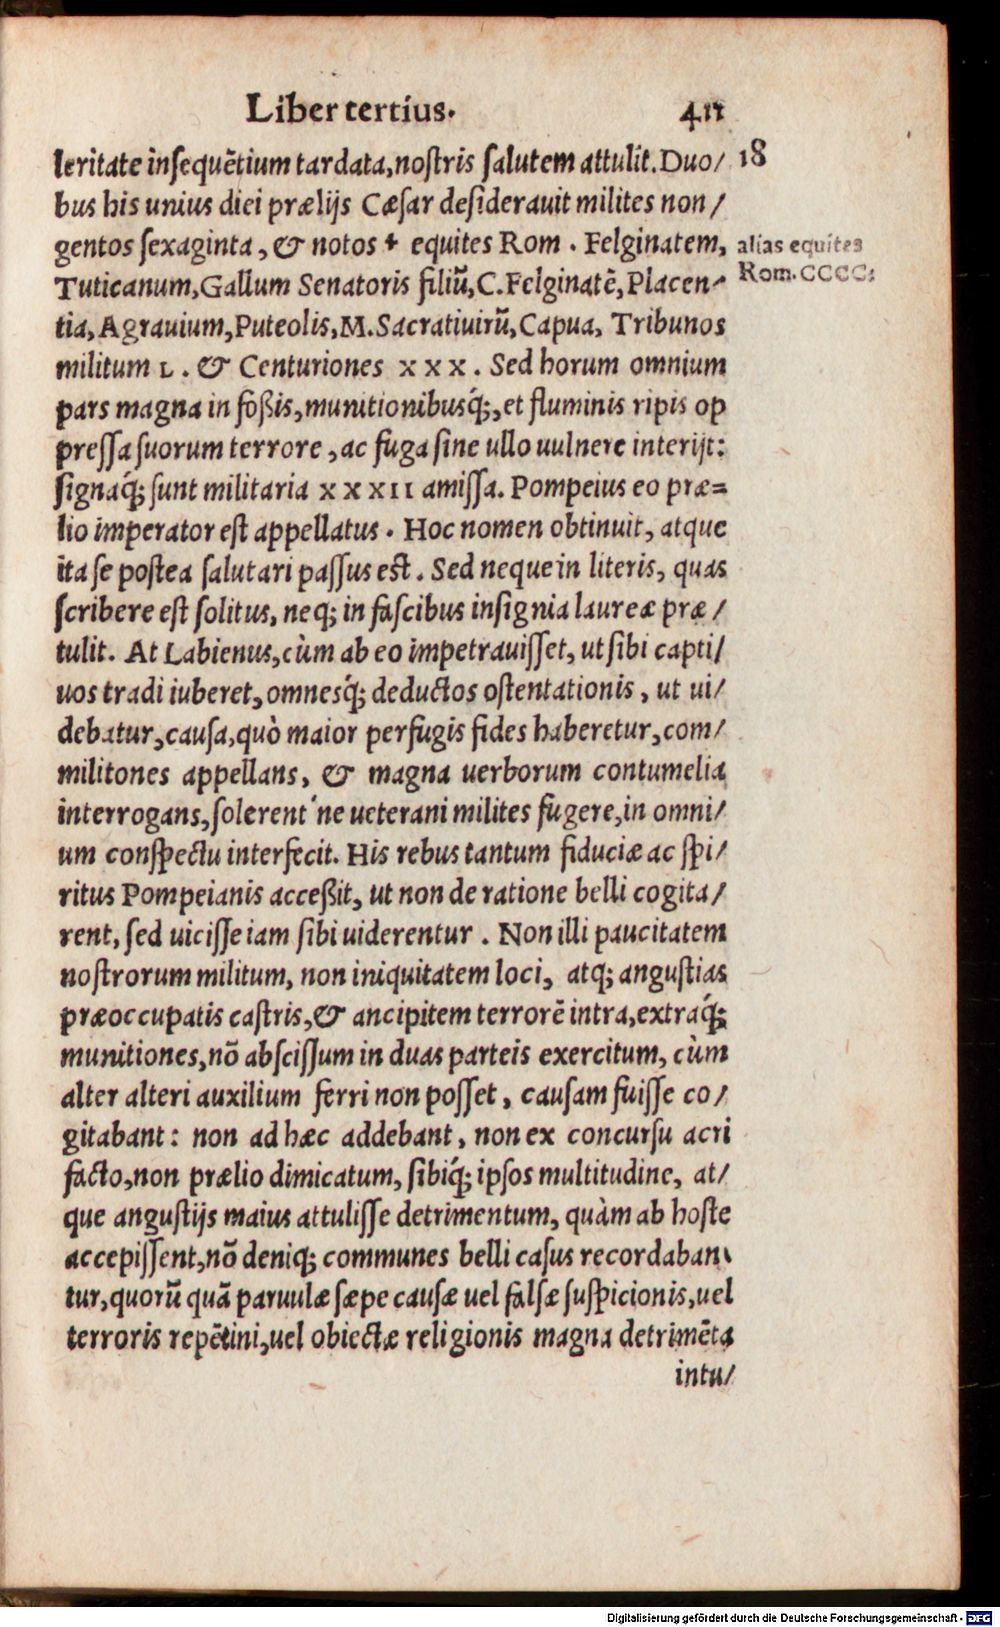 Liber tertius. 411
leritate insequẽtium tardata, nostris salutem attulit. Duo/ 18
bus his unius diei prælijs Cæsar desiderauit milites non/
gentos sexaginta, & notos + equites Rom. Felginatem, alias equites
Tuticanum, Gallum Senatoris filiũ, C. Felginatẽ, Placen- Rom. CCCC:
tia, Agrauium, Puteolis, M. Sacratiuirũ, Capua, Tribunos
militum L. & Centuriones XXX. Sed horum omnium
pars magna in foßis, munitionibusq́;, et fluminis ripis op
pressa suorum terrore, ac fuga sine ullo uulnere interijt:
signaq́; sunt militaria XXXII amissa. Pompeius eo præ=
lio imperator est appellatus. Hoc nomen obtinuit, atque
ita se postea salutari passus est. Sed neque in literis, quas
scribere est solitus, neq; in fascibus insignia laureæ præ/
tulit. At Labienus, cùm ab eo impetrauisset, ut sibi capti/
uos tradi iuberet, omnesq́; deductos ostentationis, ut ui/
debatur, causa, quò maior perfugis fides haberetur, com/
militones appellans, & magna uerborum contumelia
interrogans, solerent'ne ueterani milites fugere, in omni/
um conspectu interfecit. His rebus tantum fiduciæ ac spi/
ritus Pompeianis acceßit, ut non de ratione belli cogita/
rent, sed uicisse iam sibi uiderentur. Non illi paucitatem
nostrorum militum, non iniquitatem loci, atq; angustias
præoccupatis castris, & ancipitem terrorẽ intra, extraq́;
munitiones, nõ abscissum in duas parteis exercitum, cùm
alter alteri auxilium ferri non posset, causam fuisse co/
gitabant: non ad hæc addebant, non ex concursu acri
facto, non prælio dimicatum, sibiq́; ipsos multitudine, at/
que angustijs maius attulisse detrimentum, quàm ab hoste
accepissent, nõ deniq; communes belli casus recordaban/
tur, quorũ quã paruulæ sæpe causæ uel falsæ suspicionis, uel
terroris repẽtini, uel obiectæ religionis magna detrimẽta
intu/
Digitalisierung gefördert durch die Deutsche Forschungsgemeinschaft - DFG